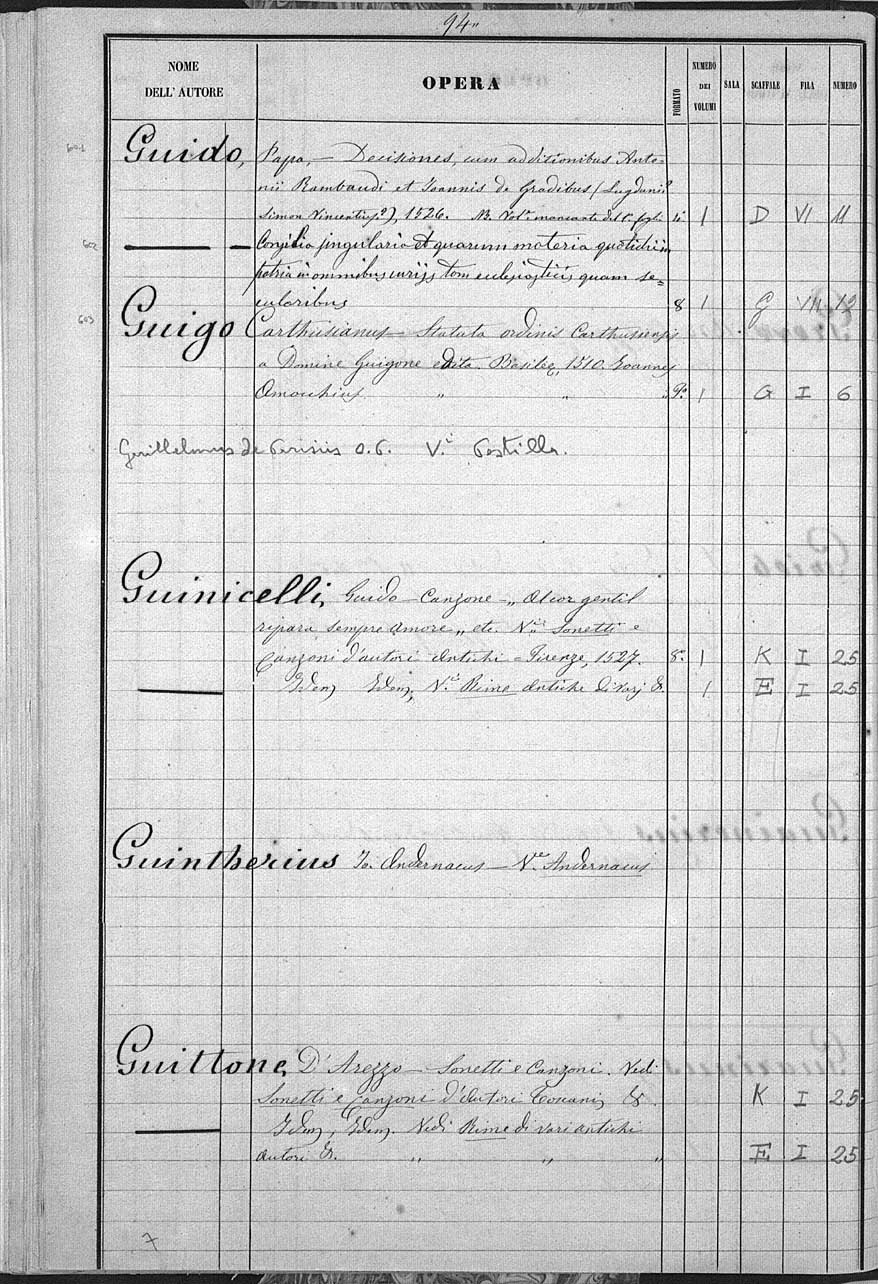 94"
NOME DELL' AUTORE OPERA FORMATO NUMERO DEI VOLUMI SALA SCAFFALE FILA NUMERO
601 Guido, Papa, — Decisiones, cum additionibus Anto=
nii Rambaudi et Joannis de Gradibus (Lugduni
Simon Vincentius), 1526. NB. Vol. mancante del 1° foglio 4° 1 D VI 11
602 — Consilia singularia et quarum materia quotidi in
patria in omnibus curijs tam eclesiasticis quam se=
cularibus 8 1 G VII 19
603 Guigo Carthusianus — Statuta ordinis Carthusiensis
a Domine Guigone edita. Basileę, 1510. Joannes
Amorchius " " " 1 G I 6
Guillelmus de Parisiis O.P. V. Postilla.
Guinicelli, Guido — Canzone — „ Al cor gentil
ripara sempre Amore „ etc. Sonetti e
Canzoni d'autori Antichi = Firenze, 1527. 8° 1 K I 25
— Idem, Idem, Rime Antiche di varj & 1 E I 25
Guintherius Jo. Andernacus — Andernacus
Guittone, D'Arezzo — Sonetti e Canzoni. Vedi
Sonetti e Canzoni d'Autori Toscani, &. K I 25
— Idem, Idem. Vedi Rime di vari antichi
autori &. " " " E I 25
7